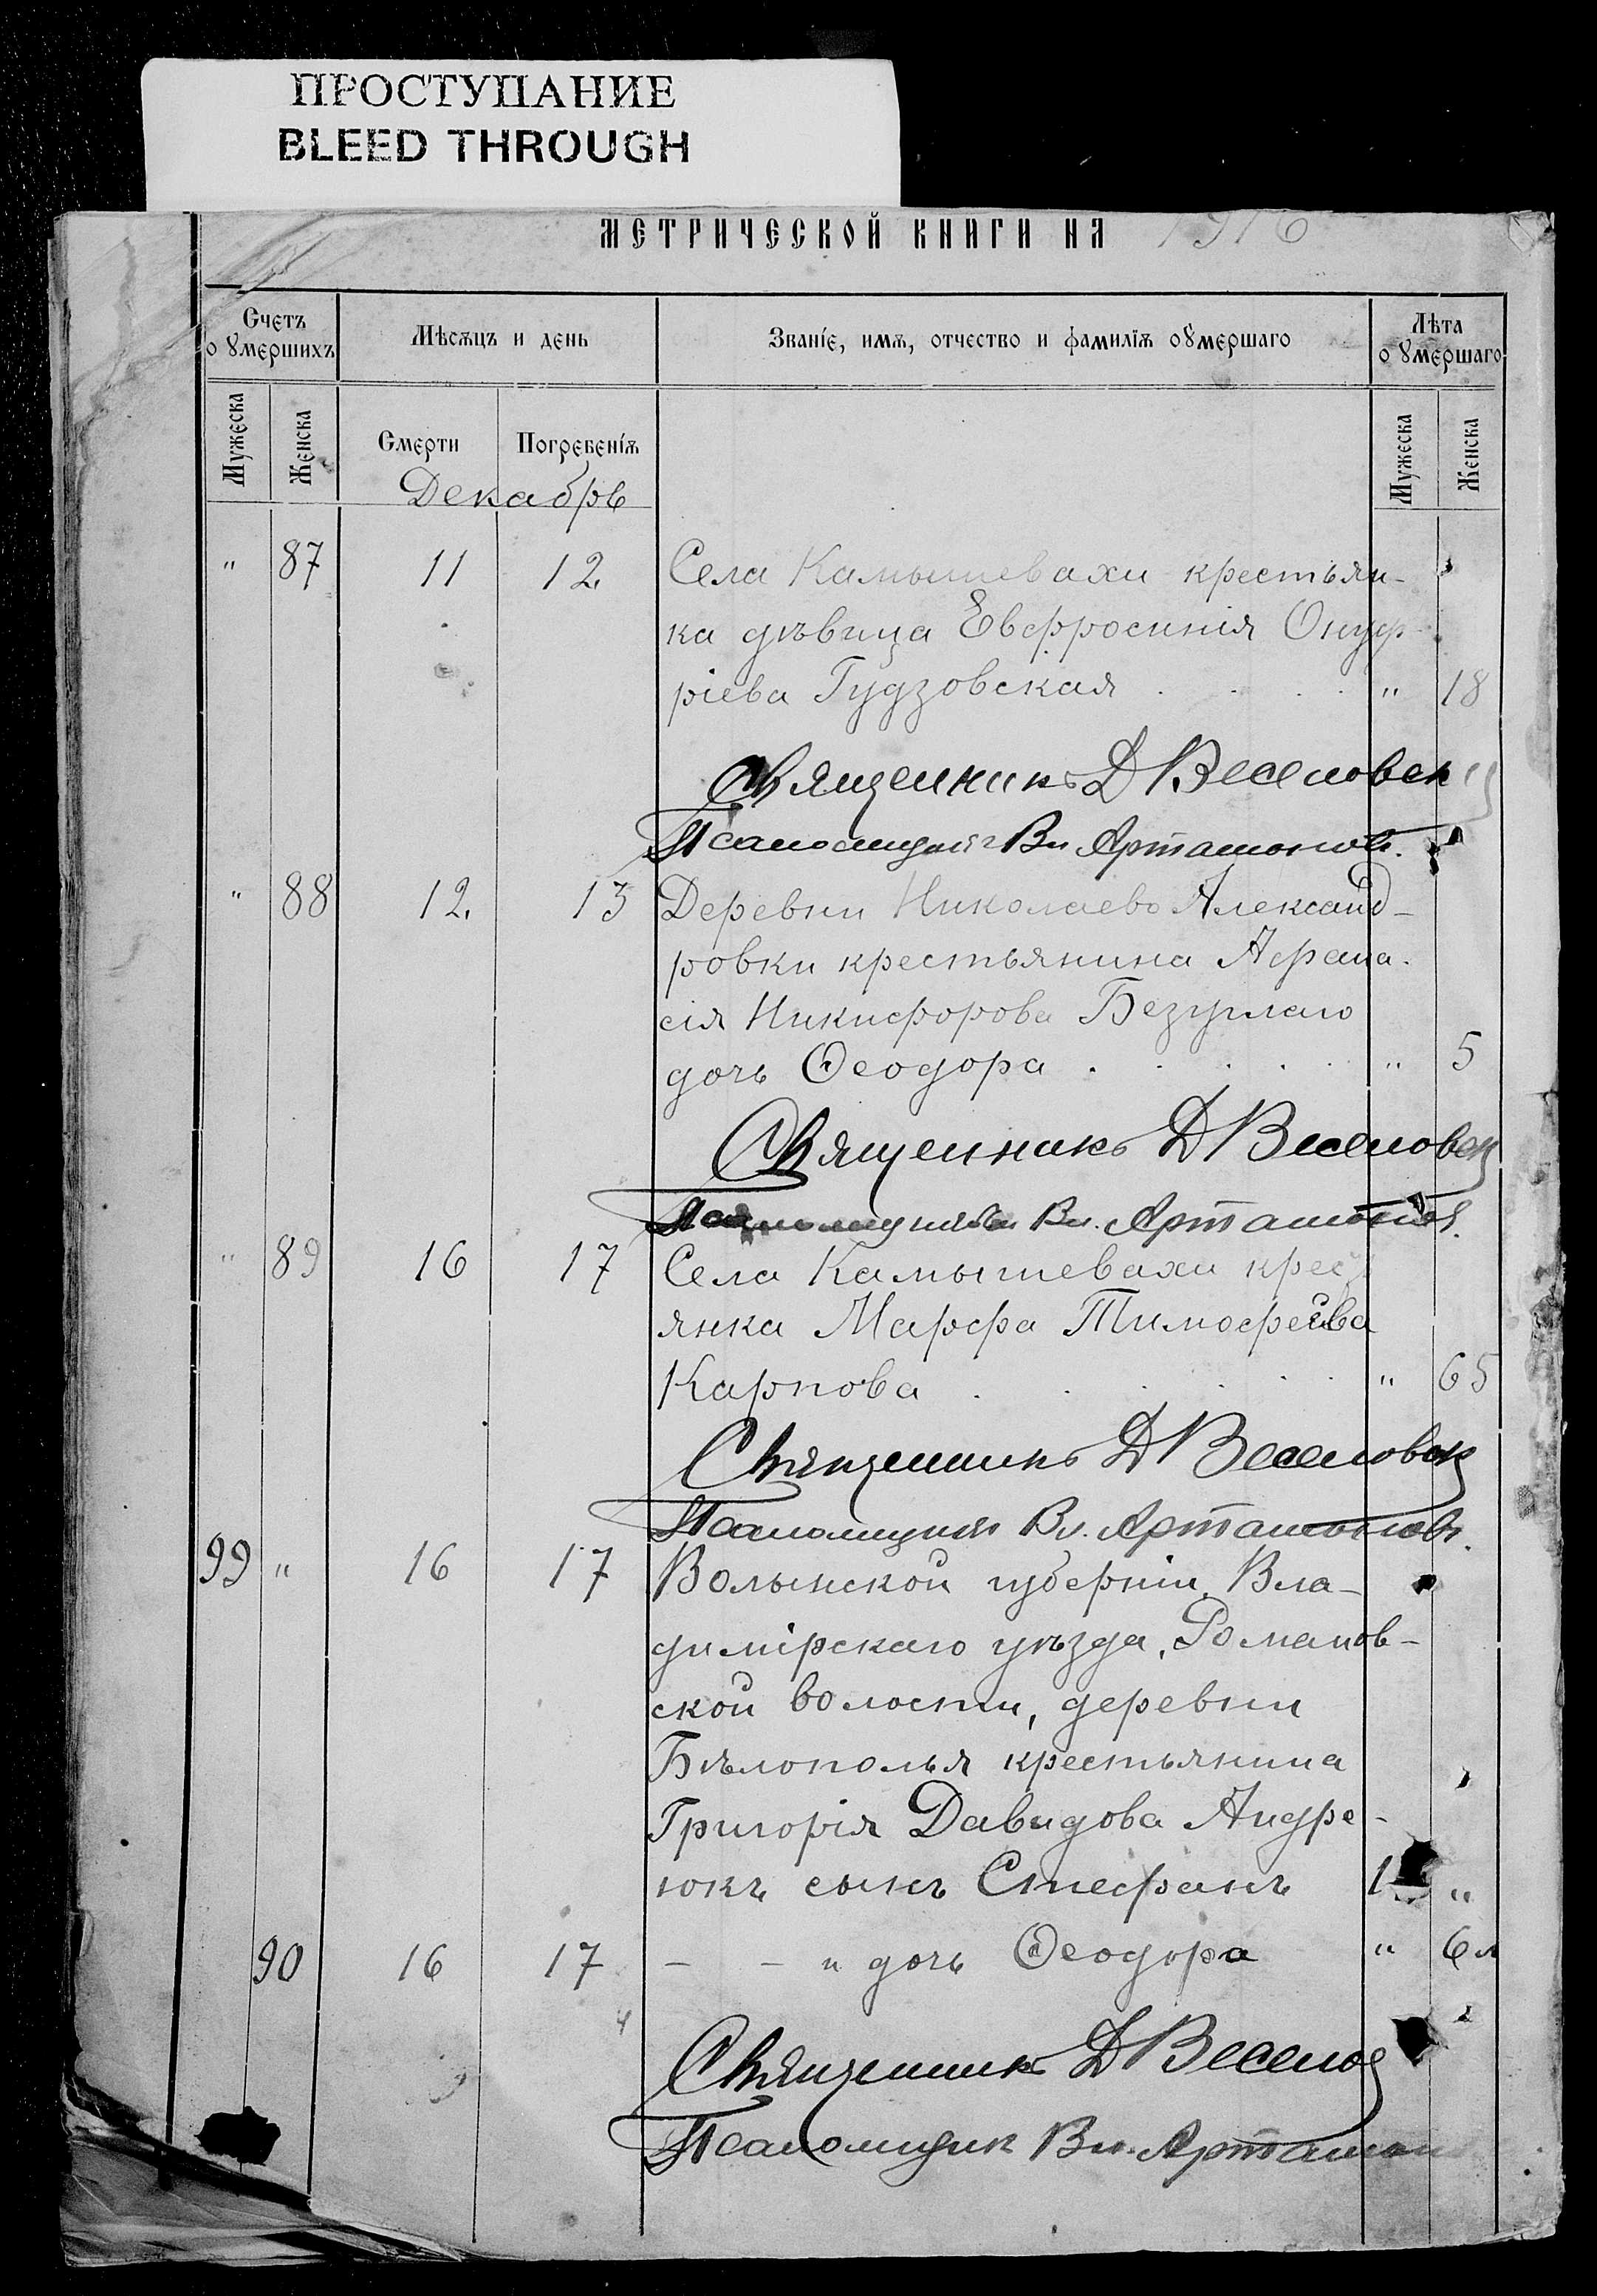 ПРОСТУПАНИЕ
BLEED THROUGH
МЕТРИЧЕСКОЙ КНИГИ НА 1916
Счетъ оумершихъ
Мѣсяцъ и день
Званіе, имя, отчество и фамилія оумершаго
Лѣта оумершаго
Мужеска
Женска
Смерти
Погребенія
Мужеска
Женска
Декабрь
" 87 11 12. Села Камышевахи крестьян-
ка дѣвица Евфросинія Онуф-
ріева Гудзовская . . . . " 18
Священникъ Д Веселовск
Псаломщикъ Вл Артамоновъ.
" 88 12. 13 Деревни Николаево Александ-
ровки крестьянина Афана-
сія Никифорова Безуглаго
дочь Ѳеодора . . . . . " 5
Священникъ Д Веселовск
Псаломщикъ Вл. Артамоновъ.
" 89 16 17 Села Камышевахи крест
янка Марфа Тимофеева
Карпова . . . . . . " 65
Священникъ Д Веселовск
Псаломщикъ Вл. Артамоновъ.
99 " 16 17 Волынской губерніи, Вла-
димірскаго уѣзда, Романов-
ской волости, деревни
Бѣлополья крестьянина
Григорія Давидова Андре-
юкъ сынъ Стефанъ 1 "
90 16 17 - - и дочь Ѳеодора " 6 л
Священникъ Д Веселов
Псаломщик Вл. Артамон